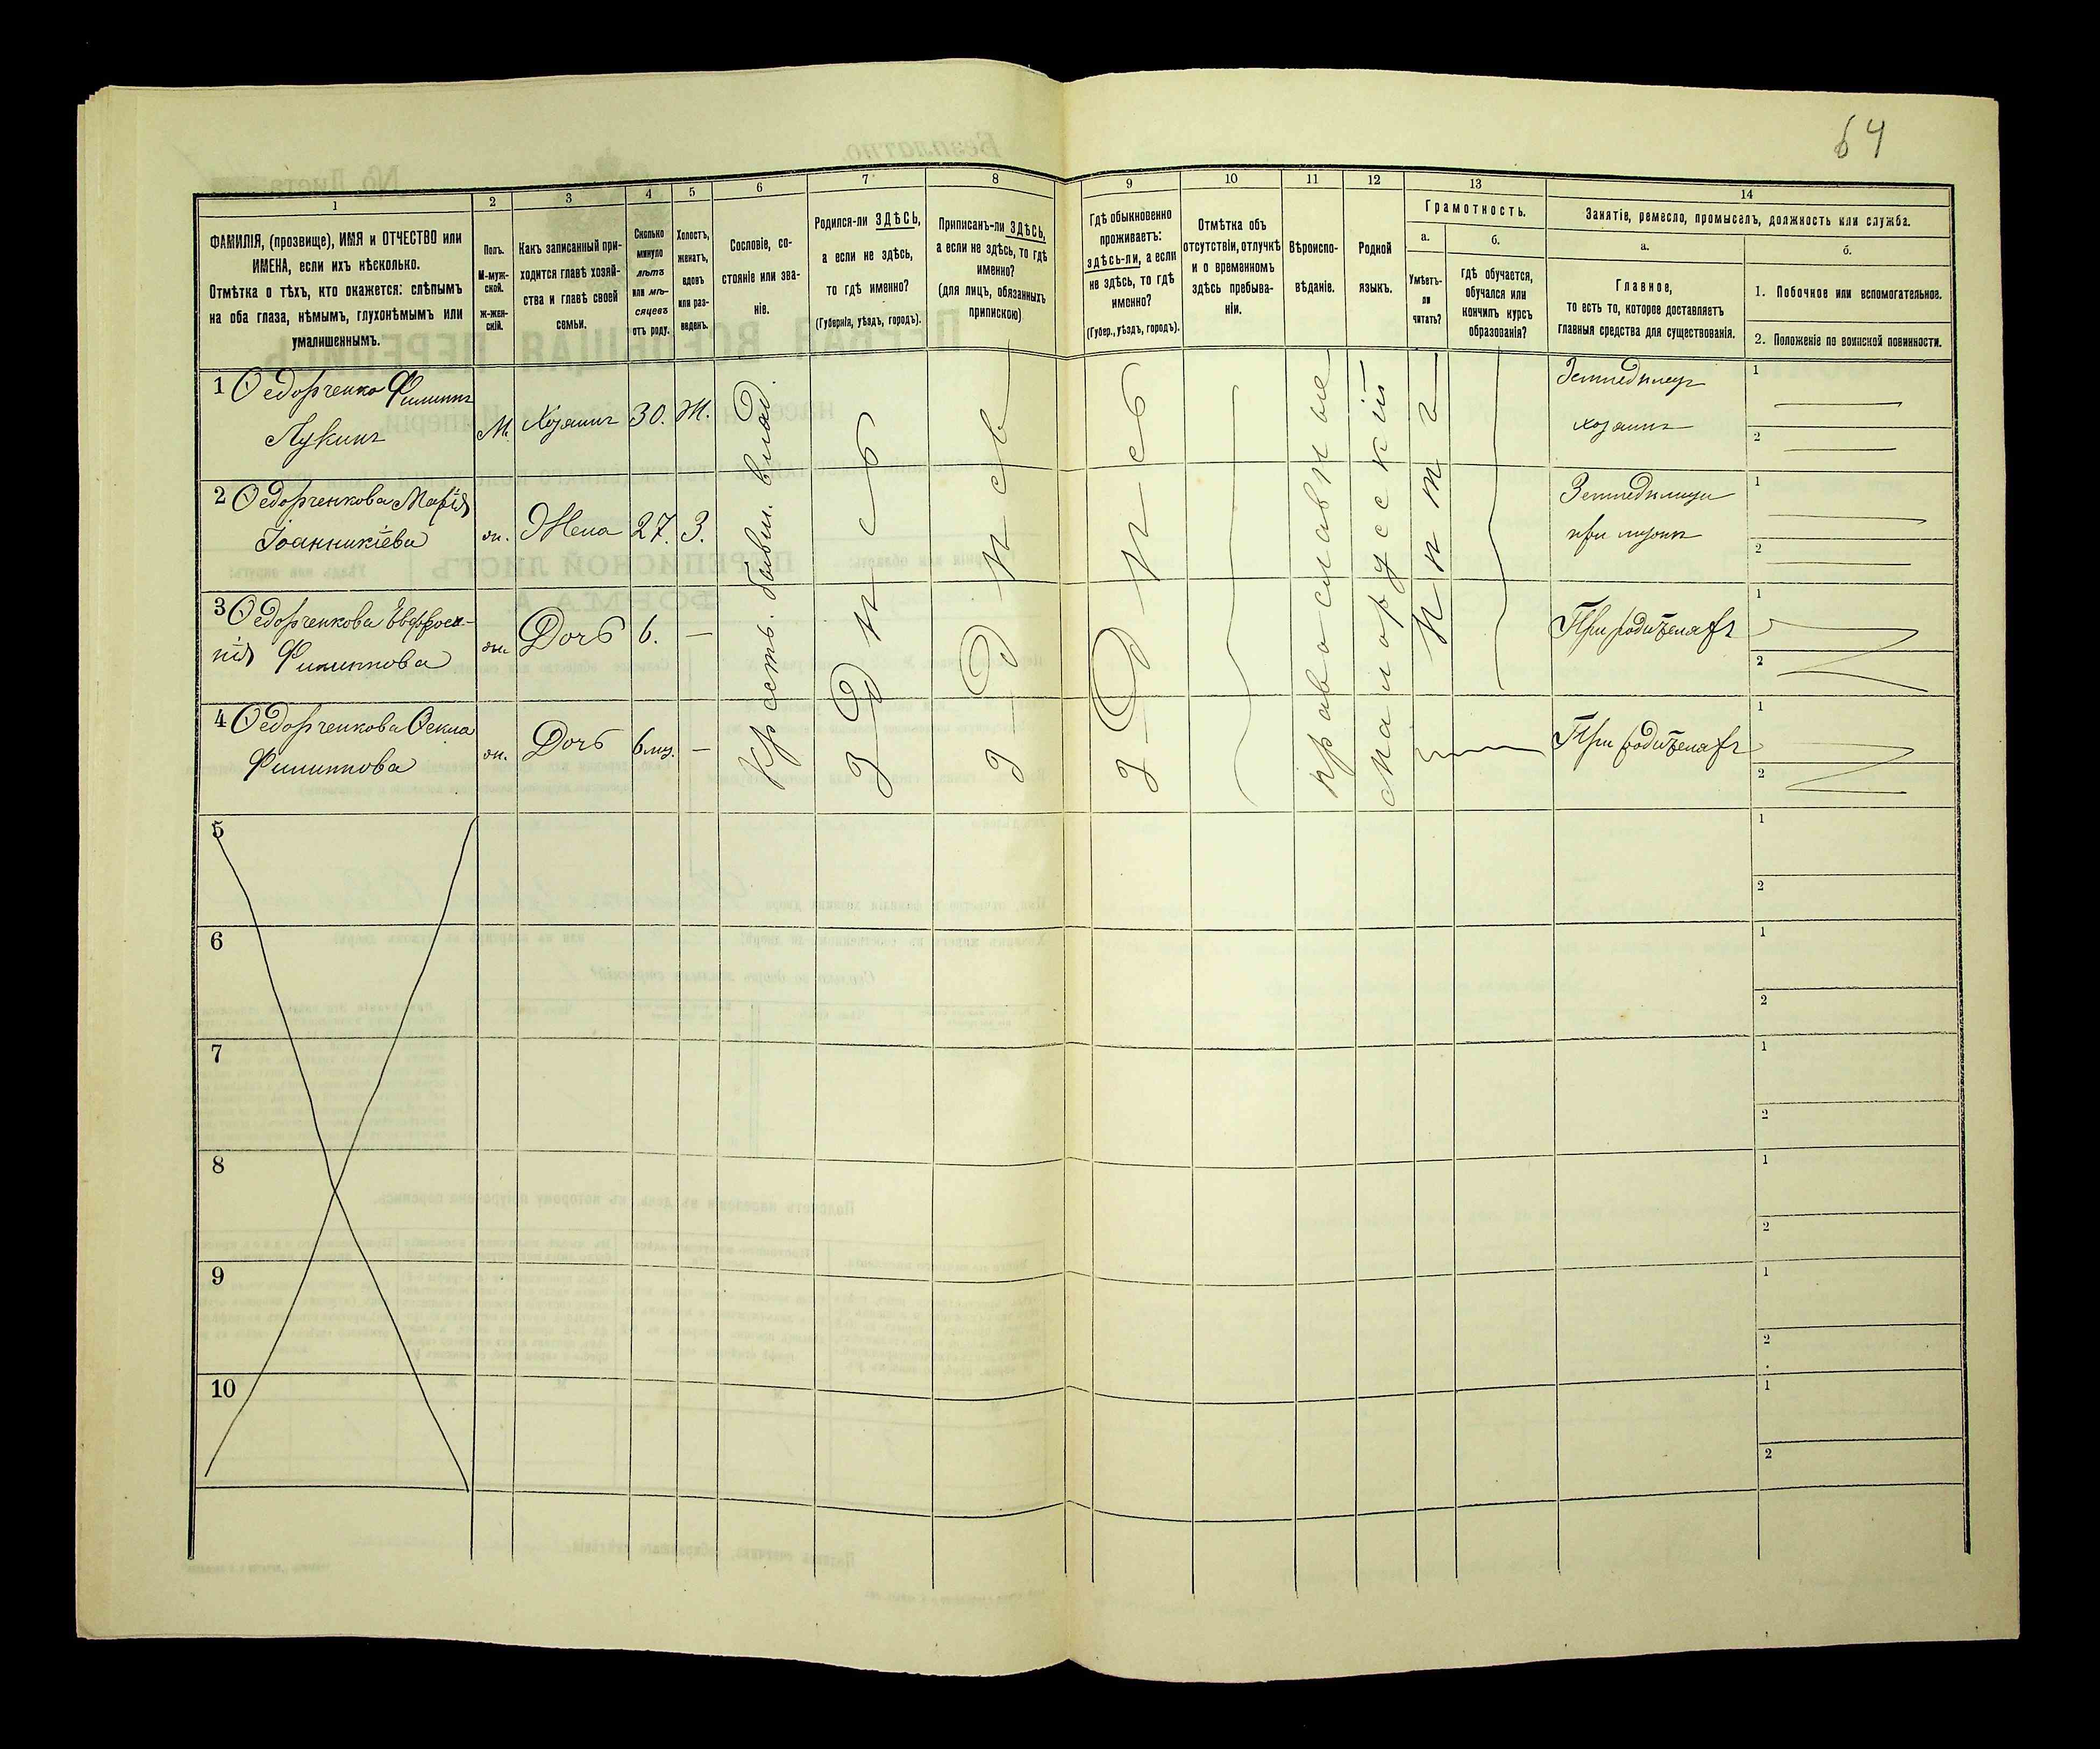 64
1
2
3
4
5
6
7
8
9
10
11
12
13
14
ФАМИЛІЯ, (прозвище), ИМЯ и ОТЧЕСТВО или
ИМЕНА, если ихъ нѣсколько.
Отмѣтка о тѣхъ, кто окажется: слѣпымъ
на оба глаза, нѣмымъ, глухонѣмымъ или
умалишеннымъ.
Полъ.
М-муж-
ской.
Ж-жен-
скій.
Какъ записанный при-
ходится главѣ хозяй-
ства и главѣ своей
семьи.
Сколько
минуло
лѣтъ
или мѣ-
сяцевъ
отъ роду.
Холостъ,
женатъ,
вдовъ
или раз-
веденъ.
Сословіе, со-
стояніе или зва-
ніе.
Родился-ли ЗДѢСЬ,
а если не здѣсь,
то гдѣ именно?
(Губернія, уѣздъ, городъ).
Приписанъ-ли ЗДѢСЬ,
а если не здѣсь, то гдѣ
именно?
(для лицъ, обязанныхъ
припискою)
Гдѣ обыкновенно
проживаетъ:
здѣсь-ли, а если
не здѣсь, то гдѣ
именно?
(Губер., уѣздъ, городъ).
Отмѣтка объ
отсутствіи, отлучкѣ
и о временномъ
здѣсь пребыва-
ніи.
Вѣроиспо-
вѣданіе.
Родной
языкъ.
Грамотность.
а.
Умѣетъ-
ли
читать?
б.
Гдѣ обучается,
обучался или
кончилъ курсъ
образованія?
Занятіе, ремесло, промыселъ, должность или служба.
а.
Главное,
то есть то, которое доставляетъ
главныя средства для существованія.
б.
1. Побочное или вспомогательное.
2. Положеніе по воинской повинности.
1 Ѳедорченко Филиппъ
Лукинъ
М.
Хозяинъ
30.
Ж.
Крестъ. бывш. влад.
здѣсь
здѣсь
здѣсь
православные
малорусскій
нѣтъ
Земледѣлецъ
хозяинъ
1
2
2 Ѳедорченкова Марія
Іоанникіева
ж.
Жена
27.
З.
Земледѣлица
при мужѣ
1
2
3 Ѳедорченкова Евфроси-
нія Филиппова
ж.
Дочь
6.
—
При родителяхъ
1
2
4 Ѳедорченкова Ѳекла
Филиппова
ж.
Дочь
6 мц.
—
При родителяхъ
1
2
5
1
2
6
1
2
7
1
2
8
1
2
9
1
2
10
1
2